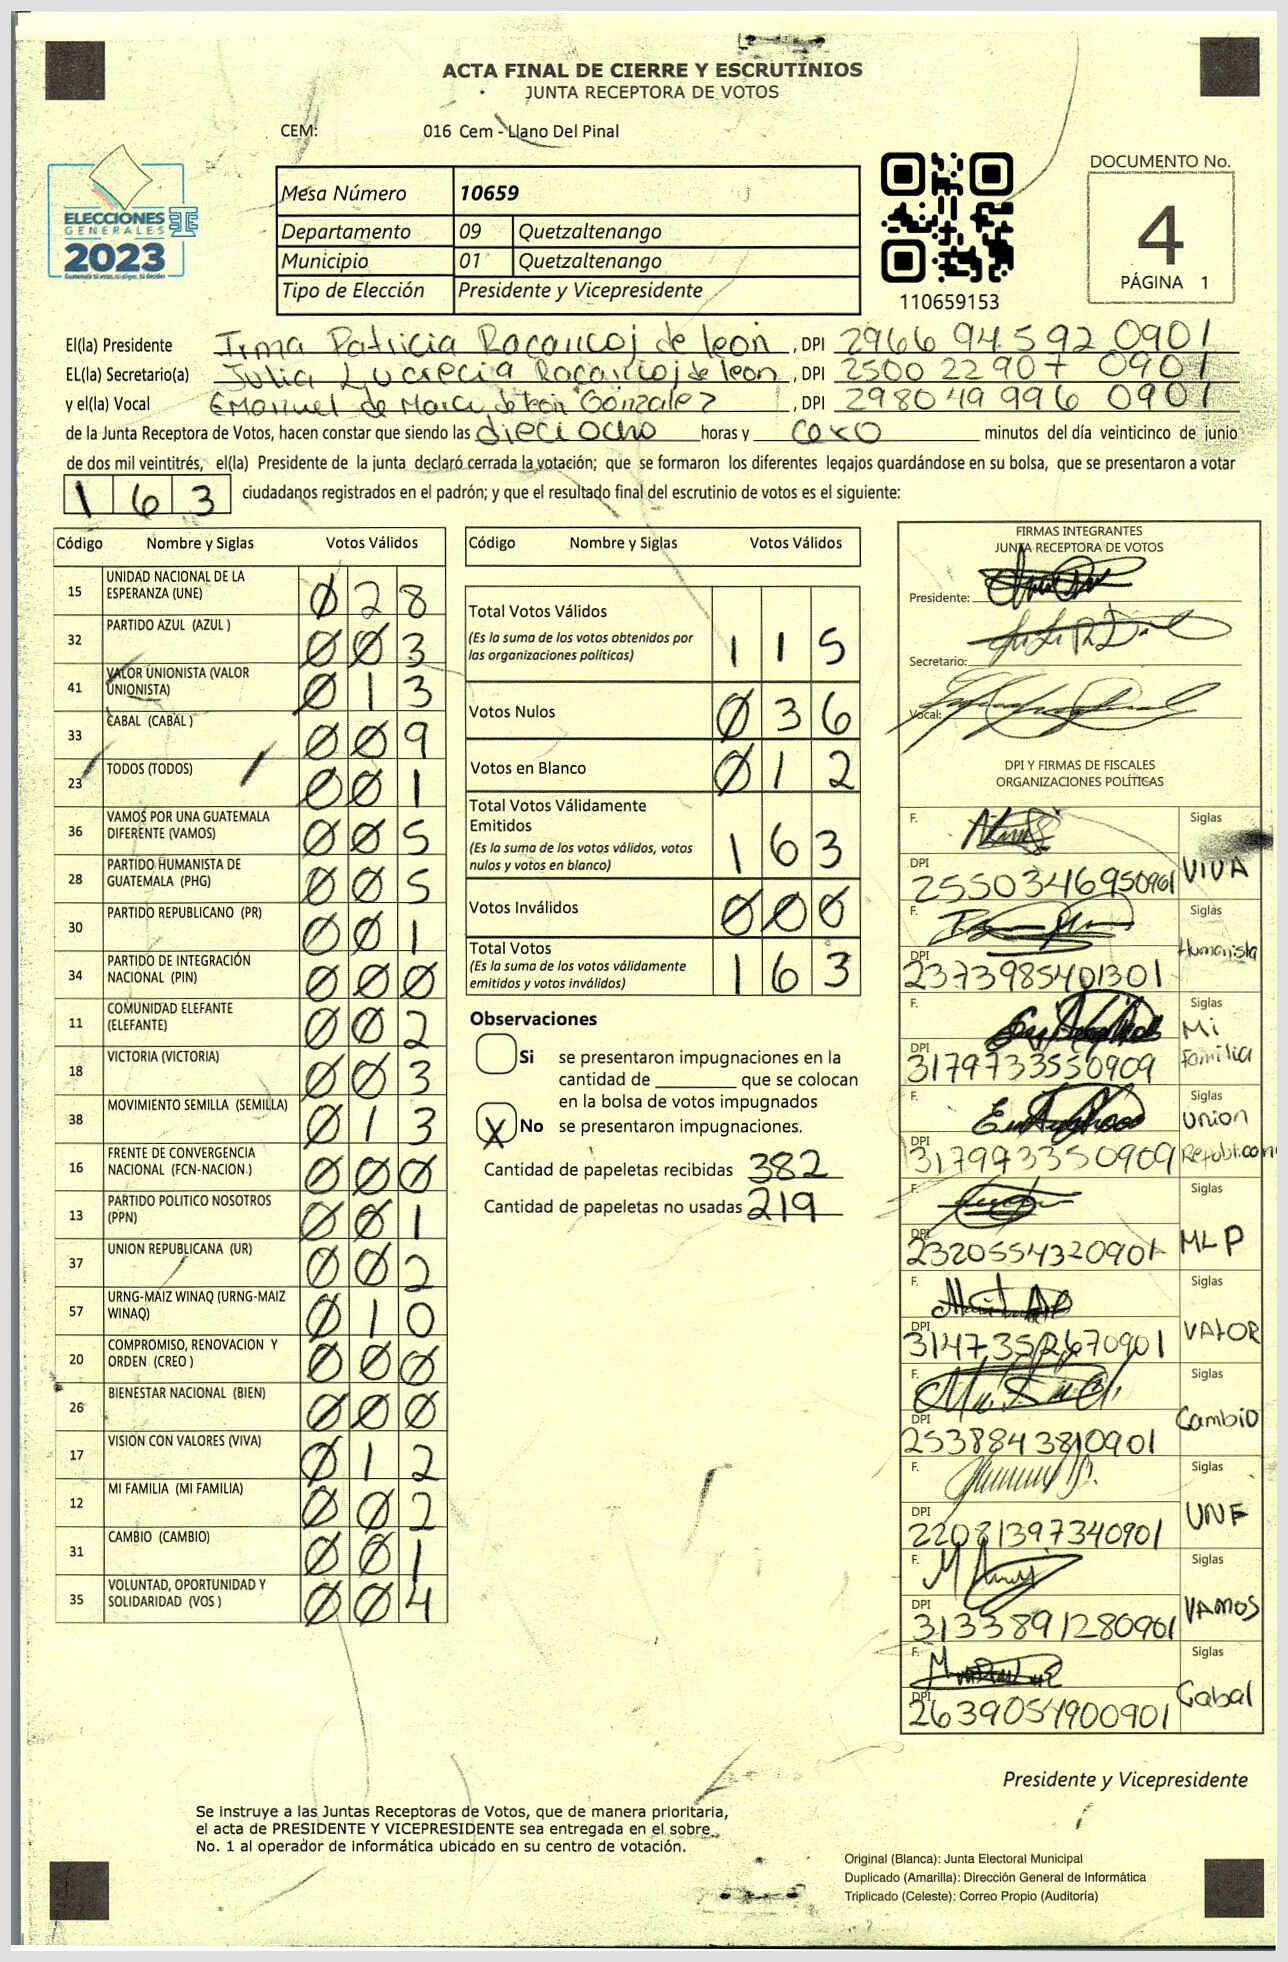 ACTA FINAL DE CIERRE Y ESCRUTINIOS
JUNTA RECEPTORA DE VOTOS
CEM: 016 Cem - Llano Del Pinal
ELECCIONES
GENERALES
2023
Mesa Número 10659
Departamento 09 Quetzaltenango
Municipio 01 Quetzaltenango
Tipo de Elección Presidente y Vicepresidente
110659153
DOCUMENTO No.
4
PÁGINA 1
El(la) Presidente Irma Patricia Racancoj de león , DPI 2966 94592 0901
EL(la) Secretario(a) Julia Lucrecia Racancoj de leon , DPI 2500 22907 0901
y el(la) Vocal Emanuel de Maria de león Gonzalez , DPI 2980 49996 0901
de la Junta Receptora de Votos, hacen constar que siendo las dieciocho horas y cero minutos del día veinticinco de junio
de dos mil veintitrés, el(la) Presidente de la junta declaró cerrada la votación; que se formaron los diferentes legajos guardándose en su bolsa, que se presentaron a votar
163 ciudadanos registrados en el padrón; y que el resultado final del escrutinio de votos es el siguiente:
Código Nombre y Siglas Votos Válidos
15 UNIDAD NACIONAL DE LA ESPERANZA (UNE) 028
32 PARTIDO AZUL (AZUL ) 003
41 VALOR UNIONISTA (VALOR UNIONISTA) 013
33 CABAL (CABAL ) 009
23 TODOS (TODOS) 001
36 VAMOS POR UNA GUATEMALA DIFERENTE (VAMOS) 005
28 PARTIDO HUMANISTA DE GUATEMALA (PHG) 005
30 PARTIDO REPUBLICANO (PR) 001
34 PARTIDO DE INTEGRACIÓN NACIONAL (PIN) 000
11 COMUNIDAD ELEFANTE (ELEFANTE) 002
18 VICTORIA (VICTORIA) 003
38 MOVIMIENTO SEMILLA (SEMILLA) 013
16 FRENTE DE CONVERGENCIA NACIONAL (FCN-NACION ) 000
13 PARTIDO POLITICO NOSOTROS (PPN) 001
37 UNION REPUBLICANA (UR) 002
57 URNG-MAIZ WINAQ (URNG-MAIZ WINAQ) 010
20 COMPROMISO, RENOVACION Y ORDEN (CREO ) 000
26 BIENESTAR NACIONAL (BIEN) 000
17 VISION CON VALORES (VIVA) 012
12 MI FAMILIA (MI FAMILIA) 002
31 CAMBIO (CAMBIO) 001
35 VOLUNTAD, OPORTUNIDAD Y SOLIDARIDAD (VOS ) 004
Código Nombre y Siglas Votos Válidos
Total Votos Válidos 115
(Es la suma de los votos obtenidos por
las organizaciones politicas)
Votos Nulos 036
Votos en Blanco 012
Total Votos Válidamente
Emitidos 163
(Es la suma de los votos válidos, votos
nulos y votos en blanco)
Votos Inválidos 000
Total Votos 163
(Es la suma de los votos válidamente
emitidos y votos inválidos)
Observaciones
Si se presentaron impugnaciones en la
cantidad de ________ que se colocan
en la bolsa de votos impugnados
X No se presentaron impugnaciones.
Cantidad de papeletas recibidas 382
Cantidad de papeletas no usadas 219
FIRMAS INTEGRANTES
JUNTA RECEPTORA DE VOTOS
Presidente:
Secretario:
Vocal:
DPI Y FIRMAS DE FISCALES
ORGANIZACIONES POLÍTICAS
F. Siglas
DPI 2550346950901 VIVA
F. Siglas
DPI 2373985401301 Humanista
F. Siglas
DPI 3179733550909 Mi familia
F. Siglas
DPI 3179933550909 Union Republicana
F. Siglas
DPI 2320554320901 MLP
F. Siglas
DPI 3147352670901 VALOR
F. Siglas
DPI 2538843810901 Cambio
F. Siglas
DPI 2208139734 0901 UNE
F. Siglas
DPI 3133891280901 VAMOS
F. Siglas
DPI 2639054900901 Cabal
Presidente y Vicepresidente
Se instruye a las Juntas Receptoras de Votos, que de manera prioritaria,
el acta de PRESIDENTE Y VICEPRESIDENTE sea entregada en el sobre
No. 1 al operador de informática ubicado en su centro de votación.
Original (Blanca): Junta Electoral Municipal
Duplicado (Amarilla): Dirección General de Informática
Triplicado (Celeste): Correo Propio (Auditoría)